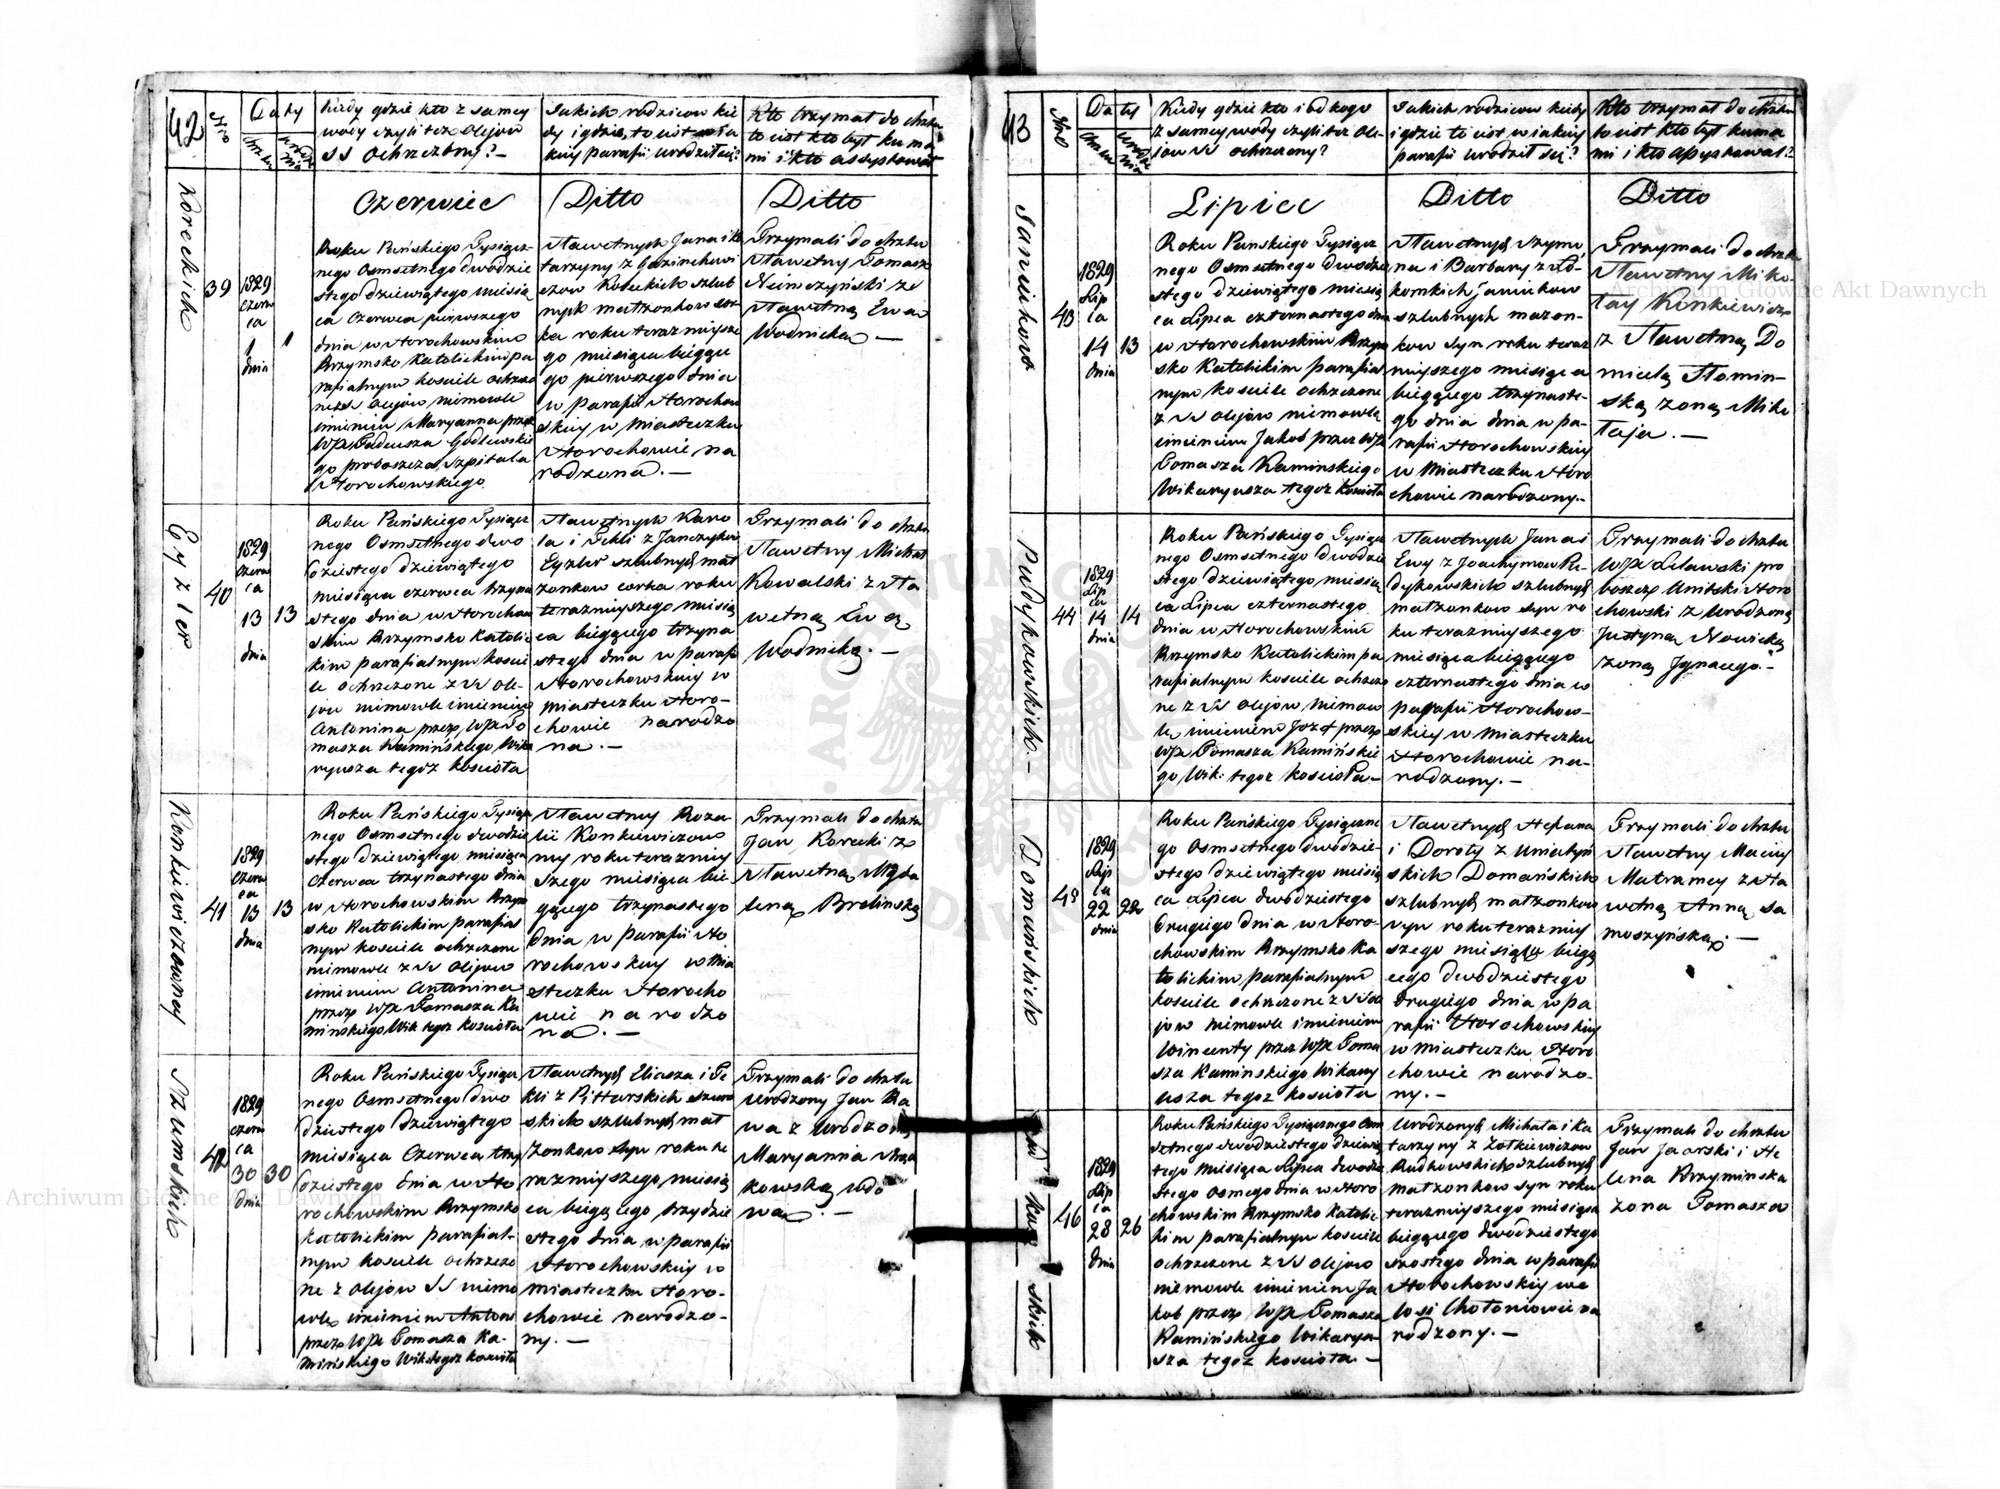 42
Nro
Daty
Chrztu
Urodzenia
Kiedy gdzie kto z samey
wody czyli też olejów
SS ochrzczony? —
Jakich rodziców kie
dy i gdzie, to iest w ia
kiey parafii urodził się?
Kto trzymał do chrztu
to iest kto był kuma
mi i kto assystował
Czerwiec
Ditto
Ditto
Koreckich
39
1829
czerw
ca
1
dnia
1
Roku Pańskiego Tysiącz
nego Osmsetnego dwudzie
stego dziewiątego miesią
ca Czerwca pierwszego
dnia w Horochowskim
Rzymsko Katolickim pa
rafialnym kościele ochrzczo
ne z SS olejów niemowle
imieniem Maryanna przez
WJX Tadeusza Godlewskie
go proboszcza Szpitala
Horochowskiego
Sławetnych Jana i Ka
tarzyny z
Koreckich szlub
nych małżonkow cor
ka roku teraznieysze
go miesiąca bieżące
go pierwszego dnia
w parafii Horochow
skiey w Miasteczku
Horochowie na
rodzona. —
Trzymali do chrztu
Sławetny Tomasz
Nieinczyński ze
Sławetną Ewą
Wodnicką —
Egzler
40
1829
Czerw
ca
13
dnia
13
Roku Pańskiego Tysiącz
nego Osmsetnego dwu
dziestego dziewiątego
miesiąca czerwca trzyna
stego dnia w Horochow
skim Rzymsko Katolic
kim parafialnym koście
le ochrzczone z SS ole
jow niemowle imieniem
Antonina przez WJX To
masza Kamińskiego Wika
ryusza tegoż kościoła
Sławetnych Karo
la i Tekli z Janczykow
Egzler szlubnych mał
żonkow corka roku
teraznieyszego miesią
ca bieżącego trzyna
stego dnia w parafii
Horochowskiey w
miasteczku Horo-
chowie narodzo
na. —
Trzymali do chrztu
Sławetny Michał
Kowalski z Sła
wetną Ewą
Wodnicką. —
Konkiewiczowney
41
1829
Czerw
ca
13
dnia
13
Roku Pańskiego Tysiącz
nego Osmsetnego dwudzie
stego dziewiątego miesiąca
Czerwca trzynastego dnia
w Horochowskim Rzym
sko Katolickim parafial
nym kościele ochrzczone
niemowle z SS olejow
imieniem Antonina
przez WJX Tomasza Ka
mińskiego Wik tegoż kościoła
Sławetney Roza
lii Konkiewiczow
ny roku terazniey
szego miesiąca bie
żącego trzynastego
dnia w parafii Ho
rochowskiey w Mia
steczku Horocho
wie narodzo
na. —
Trzymali do chrztu
Jan Korecki z
Sławetną Magda
leną Brolinską
Szumskich
42
1829
czerw
ca
30
dnia
30
Roku Pańskiego Tysiącz
nego Osmsetnego dwu
dziestego dziewiątego
miesiąca Czerwca trzy
dziestego dnia w Ho
rochowskim Rzymsko
katolickim parafial-
nym kościele ochrzczo
ne z olejow SS niemo
wle imieniem Antoni
przez WJX Tomasza Ka-
mińskiego Wik tegoż kościoła
Sławetnych Eliasza i Te
kli z Pittarskich Szum
skich szlubnych mał
żonkow syn roku te
raznieyszego miesią
ca bieżącego trzydzie
stego dnia w parafii
Horochowskiey w
miasteczku Horo-
chowie narodzo-
ny. —
Trzymali do chrztu
Urodzony Jan Ka
wa z Urodzoną
Maryanną
kowską wdo
wą. —
43
Nro
Daty
Chrztu
Urodzenia
Kiedy gdzie kto i od kogo
z samey wody czyli też Ole-
jow SS ochrzczony?
Jakich rodzicow kiedy
i gdzie to iest w iakiey
parafii urodził się?
Kto trzymał do chrztu
to iest kto był kuma
mi i kto assystował?
Lipiec
Ditto
Ditto
Janiukow
43
1829
Lip
ca
14
dnia
13
Roku Pańskiego Tysiącz
nego Osmsetnego dwudzie
stego dziewiątego miesią
ca Lipca czternastego dnia
w Horochowskim Rzym
sko Katolickim parafial
nym kościele ochrzczone
z SS olejow niemowle
imieniem Jakob przez WJX
Tomasza Kamińskiego
Wikaryusza tegoż kościoła
Sławetnych Szymo
na i Barbary z
Janiukow
szlubnych małżon-
kow syn roku teraz
nieyszego miesiąca
bieżącego trzynaste-
go dnia w pa-
rafii Horochowskiey
w Miasteczku Horo
chowie narodzony. —
Trzymali do chrztu
Sławetny Miko
łay Konkiewicz
z Sławetną Do
micelą Słomin-
ską żoną Miko
łaja. —
Pudykowskich —
44
1829
Lip
ca
14
dnia
14
Roku Pańskiego Tysiącz
nego Osmsetnego dwudzie
stego dziewiątego miesią
ca Lipca czternastego
dnia w Horochowskim
Rzymsko Katolickim pa
rafialnym kościele ochrzczo
ne z SS olejow niemow
le imieniem Jozef przez
WJX Tomasza Kamińskie
go Wik: tegoż kościoła —
Sławetnych Jana i
Ewy z Joachymow Pu
dykowskich szlubnych
małżonkow syn ro
ku teraznieyszego
miesiąca bieżącego
czternastego dnia w
parafii Horochow-
skiey w Miasteczku
Horochowie na-
rodzony. —
Trzymali do chrztu
WJX Lelawski pro
boszcz Unitski Horo
chowski z Urodzoną
Justyną Nowicką
żoną Ignacego. —
Domańskich
45
1829
Lip
ca
22
dnia
22
Roku Pańskiego Tysiączne
go Osmsetnego dwudzie-
stego dziewiątego miesią
ca Lipca dwudziestego
drugiego dnia w Horo-
chowskim Rzymsko Ka
tolickim parafialnym
kościele ochrzczone z SS ole
jow niemowle imieniem
Wincenty przez WJX Toma
sza Kamińskiego Wikary
usza tegoż kościoła
Sławetnych Stefana
i Doroty z
Domańskich
szlubnych małżonkow
syn roku terazniey
szego miesiąca bieżą
cego dwudziestego
drugiego dnia w pa
rafii Horochowskiey
w Miasteczku Horo
chowie narodzo-
ny. —
Trzymali do chrztu
Sławetny Maciey
Matramey z Sła
wetną Anną Sa
moszyńską. —
skich
46
1829
Lip
ca
28
dnia
26
Roku Pańskiego Tysiącznego Osm
setnego dwudziestego dziewią
tego Miesiąca Lipca dwudzie
stego osmego dnia w Horo
chowskim Rzymsko Katolic
kim parafialnym kościele
ochrzczone z SS olejow
niemowle imieniem Ja
kob przez WJX Tomasza
Kamińskiego Wikaryu-
sza tegoż kościoła. —
Urodzonych Michała i Ka
tarzyny z Zołkiewiczow
Rudkowskich szlubnych
małżonkow syn roku
teraznieyszego miesiąca
bieżącego dwudziestego
szostego dnia w parafii
Horochowskiey we
wsi Chołoniowie na
rodzony. —
Trzymali do chrztu
Jan Jaorski i He
lena Krzyminska
żona Tomasza
Archiwum Główne Akt Dawnych
Archiwum Główne Akt Dawnych